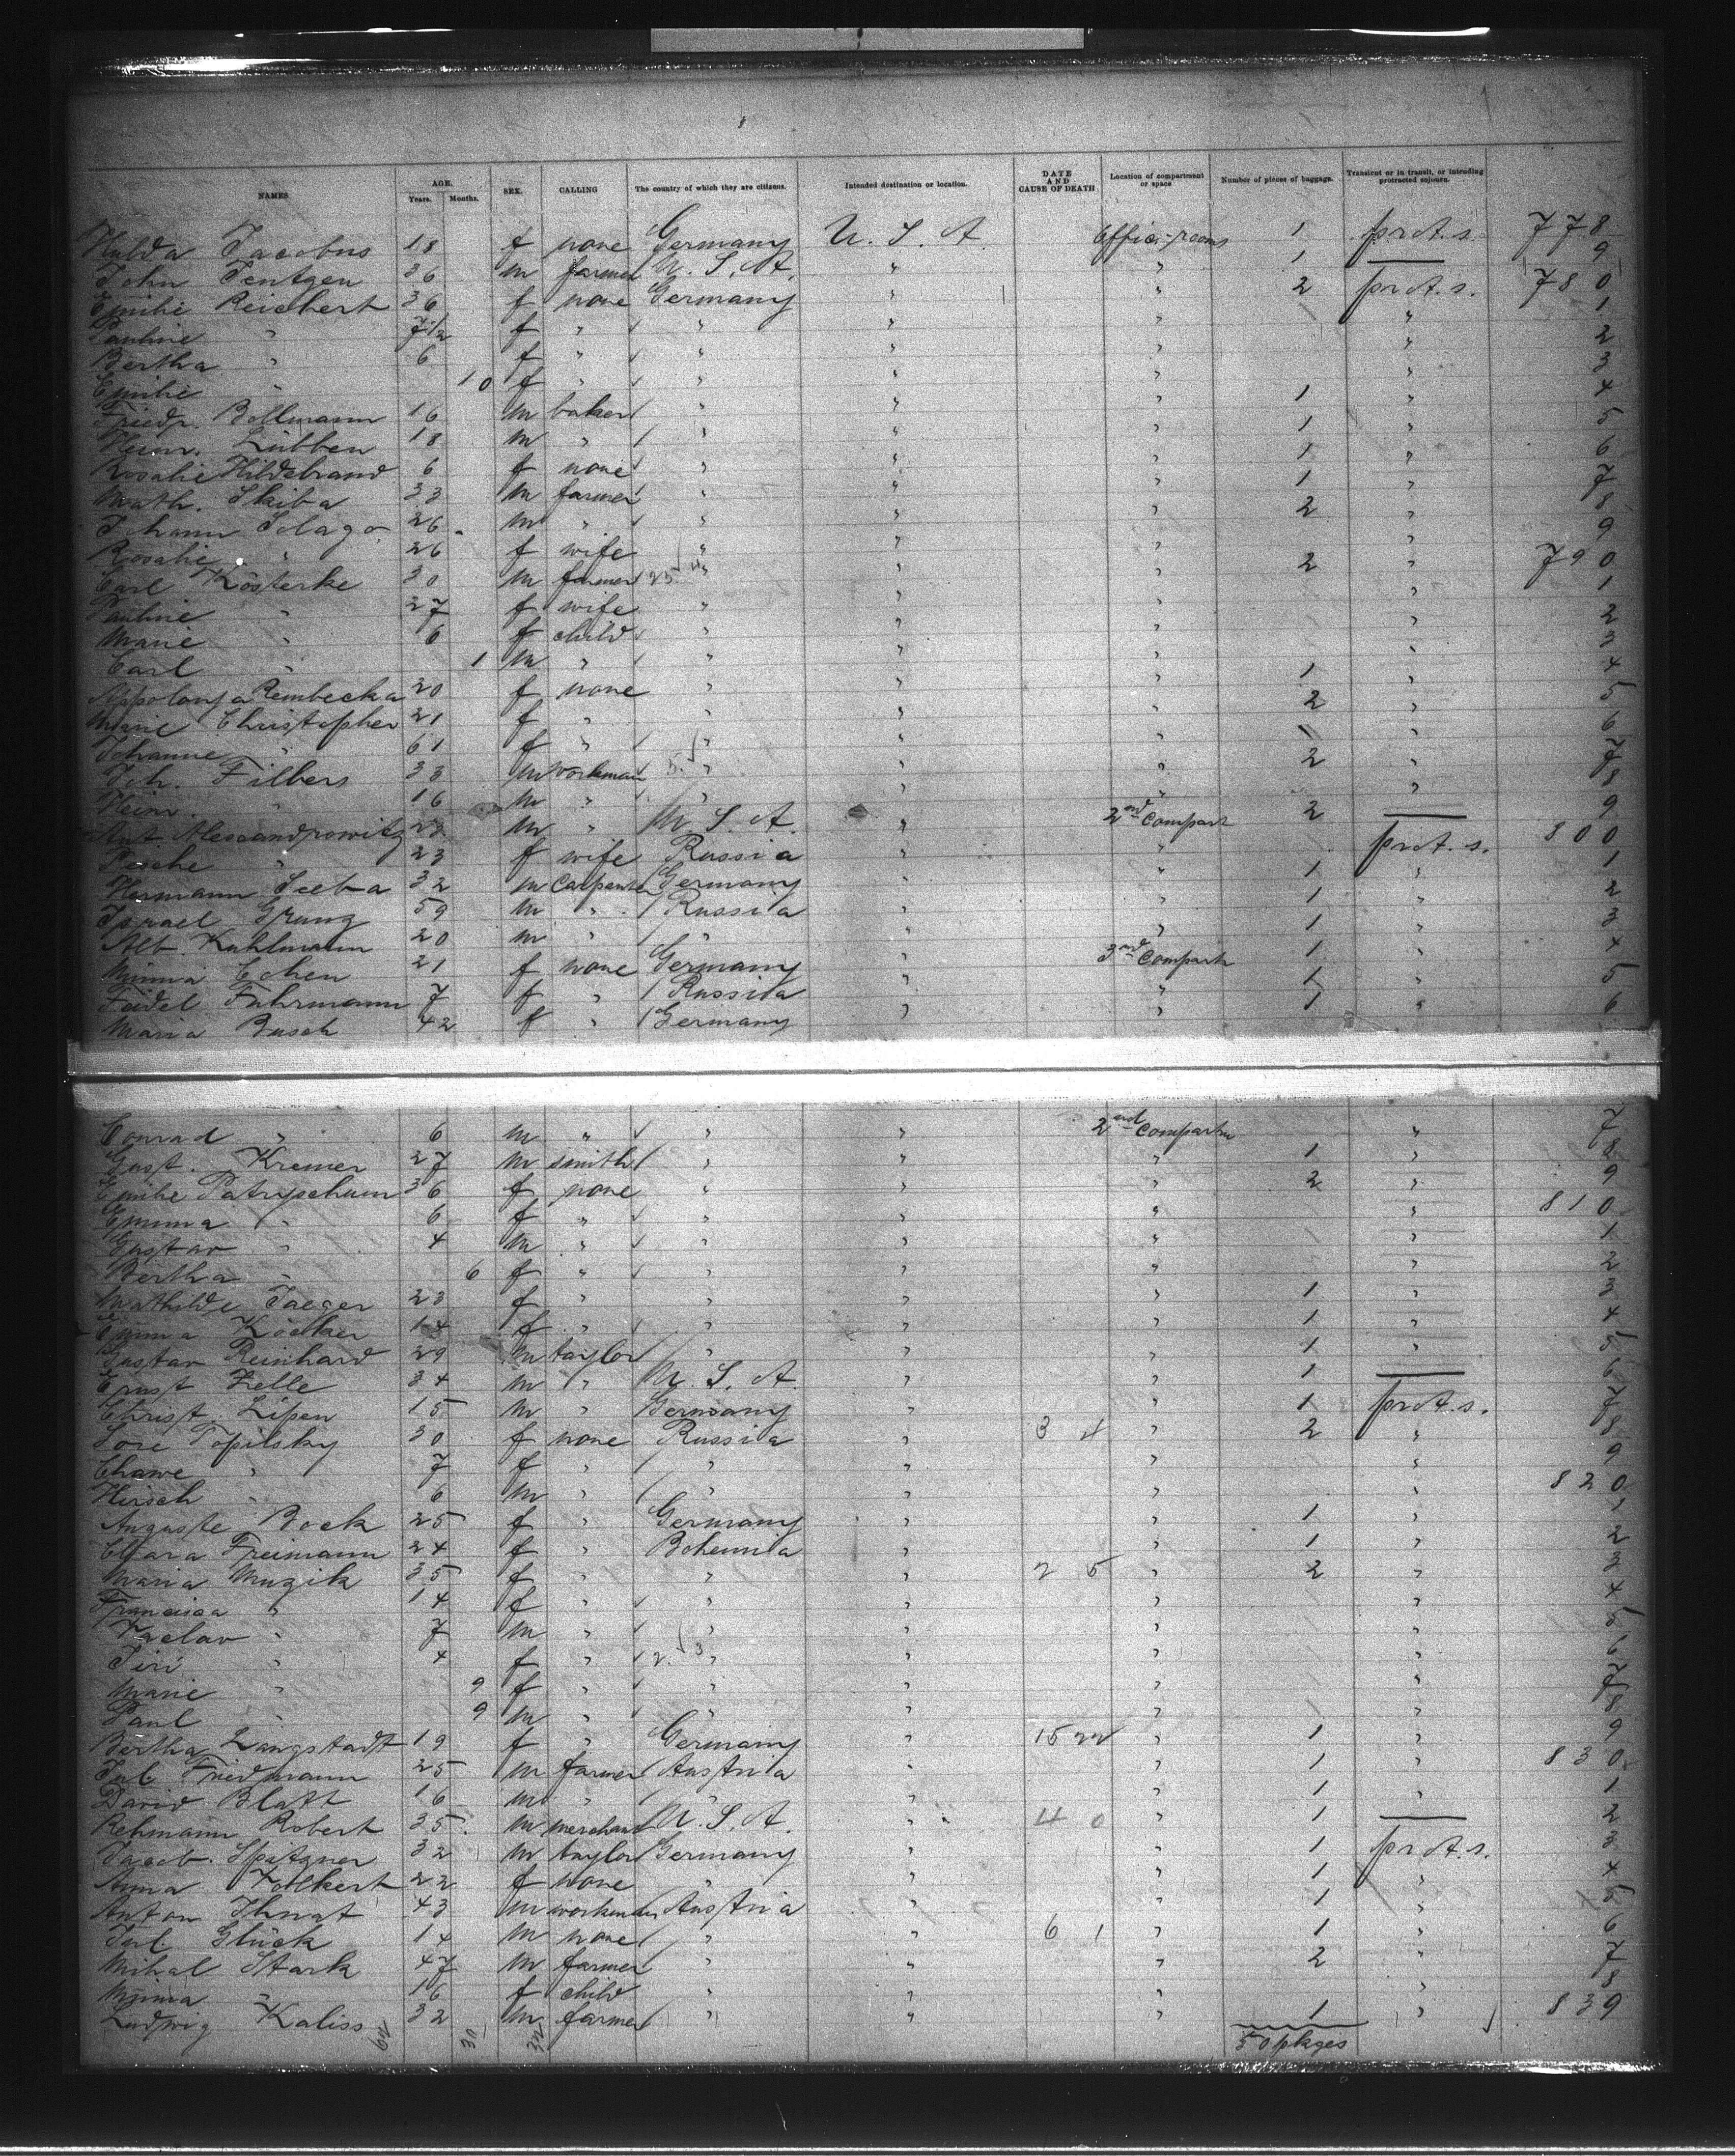 NAMES AGE. Years. Months. SEX. CALLING The country of which they are citizens. Intended destination or location. DATE AND CAUSE OF DEATH Location of compartment or space Number of pieces of baggage. Transient or in transit, or intending protracted sojourn.
Hulda Jacobus 18 f none Germany U. S. A. Office-rooms 1 prot. s. 778
John Jentgen 36 m farmer U. S. A. " " 1 — 9
Emilie Reichert 36 f none Germany " " 2 prot. s. 780
Pauline " 7 1/2 f " " " " " 1
Bertha " 6 f " " " " " 2
Emilie " 10 f " " " " " 3
Friedr. Bollmann 16 m baker " " " 1 " 4
Heinr. Lübben 18 m " " " " 1 " 5
Rosalie Hildebrand 6 f none " " " 1 " 6
Math. Skiba 33 m farmer " " " 1 " 7
Johann Solago 26 m " " " " 2 " 8
Rosalie " 26 f wife " " " " 9
Carl Kösterke 30 m farmer " " " 2 " 790
Pauline " 27 f wife " " " " 1
Marie " 6 f child " " " " 2
Carl " 1 m " " " " " 3
Appolonja Rembecka 20 f none " " " 1 " 4
Marie Christopher 21 f " " " " 2 " 5
Johanne " 61 f " " " " " 6
Joh. Filbers 33 m workman " " " 2 " 7
Heinr. " 16 m " " " " " 8
Ant. Alexandrowitz 23 m " U. S. A. " 2nd Compart 2 — 9
Pesche " 23 f wife Russia " " prot. s. 800
Hermann Seeba 32 m Carpenter Germany " " 1 " 1
Israel Grung 59 m " Russia " " 1 " 2
Alb. Kuhlmann 20 m " " " " 1 " 3
Minna Cohen 21 f none Germany " 3rd Compart 1 " 4
Feidel Fuhrmann 7 f " Russia " " 1 " 5
Maria Busch 42 f " Germany " " 1 " 6
Conrad " 6 m " " " 2nd Compartm " 7
Gust. Kremer 27 m smith " " " 1 " 8
Emilie Patrzschum 36 f none " " " 2 " 9
Emma " 6 f " " " " " 810
Gustav " 4 m " " " " " 1
Bertha " 6 f " " " " " 2
Mathilde Jaeger 23 f " " " " 1 " 3
Emma Köcker 14 f " " " " 1 " 4
Gustav Reinhard 29 m taylor " " " 1 " 5
Ernst Zelle 34 m " U. S. A. " " 1 — 6
Christ. Lipen 15 m " Germany " " 1 prot. s. 7
Sore Topilsky 30 f none Russia " 3 4 " 2 " 8
Chawe " 7 f " " " " " 9
Hirsch " 6 m " " " " " 820
Auguste Bock 25 f " Germany " " 1 " 1
Clara Freimann 24 f " Bohemia " " 1 " 2
Maria Muzik 35 f " " " 2 5 " 2 " 3
Francisca " 14 f " " " " " 4
Vaclav " 7 m " " " " " 5
Jiri " 4 f " " " " " 6
Marie " 9 f " " " " " 7
Paul " 9 m " " " " " 8
Bertha Langstadt 19 f " Germany " 15 22 " 1 " 9
Jul. Friedmann 25 m farmer Austria " " 1 " 830
David Blatt 16 m " " " " 1 " 1
Rehmann Robert 35 m merchant U. S. A. " 4 0 " 1 — 2
Jacob Spatzner 32 m taylor Germany " " 1 prot. s. 3
Anna Volkert 22 f none " " " 1 " 4
Anton Ihnat 43 m workman Austria " " 1 " 5
Jul. Glück 14 m none " " 6 1 " 1 " 6
Mihal Stark 47 m farmer " " " 2 " 7
Minna " 16 f child " " " " 8
Ludwig Kaliss 32 m farmer " " " 1 " 839
50 pkges